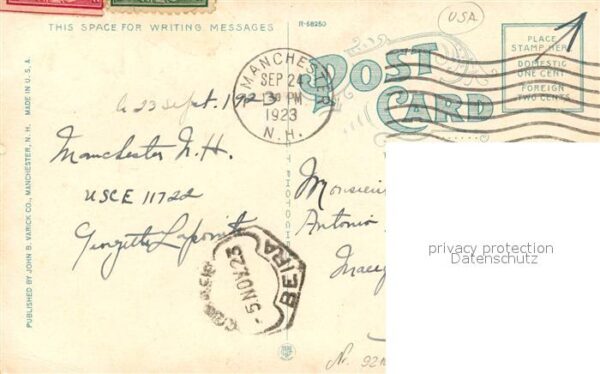 USA
THIS SPACE FOR WRITING MESSAGES
R-68250
POST
CARD
PLACE
STAMP HERE
DOMESTIC
ONE CENT
FOREIGN
TWO CENTS
MANCHESTER
SEP 24
PM
1923
N.H.
23 Sept. 1923
Manchester N.H.
USCE 11722
Georgette Lapointe
Monsieur
Antonio
BEIRA
-5 NOV.23
privacy protection
Datenschutz
Nr.
PUBLISHED BY JOHN B. VARICK CO., MANCHESTER, N. H. MADE IN U. S. A.